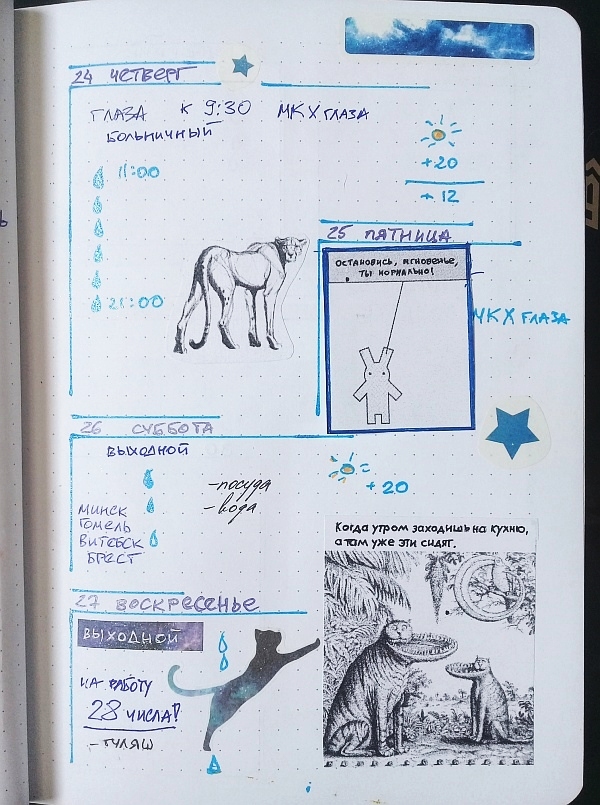 24 ЧЕТВЕРГ
ГЛАЗА К 9:30 МКХ ГЛАЗА
БОЛЬНИЧНЫЙ
11:00
21:00
+20
+12
25 ПЯТНИЦА
ОСТАНОВИСЬ, МГНОВЕНЬЕ,
ТЫ НОРМАЛЬНО!
МКХ ГЛАЗА
26 СУББОТА
ВЫХОДНОЙ
=
+20
-посуда
-вода
МИНСК
ГОМЕЛЬ
ВИТЕБСК
БРЕСТ
Когда утром заходишь на кухню,
а там уже эти сидят.
27 ВОСКРЕСЕНЬЕ
ВЫХОДНОЙ
НА РАБОТУ
28 ЧИСЛА!
-ГУЛЯШ